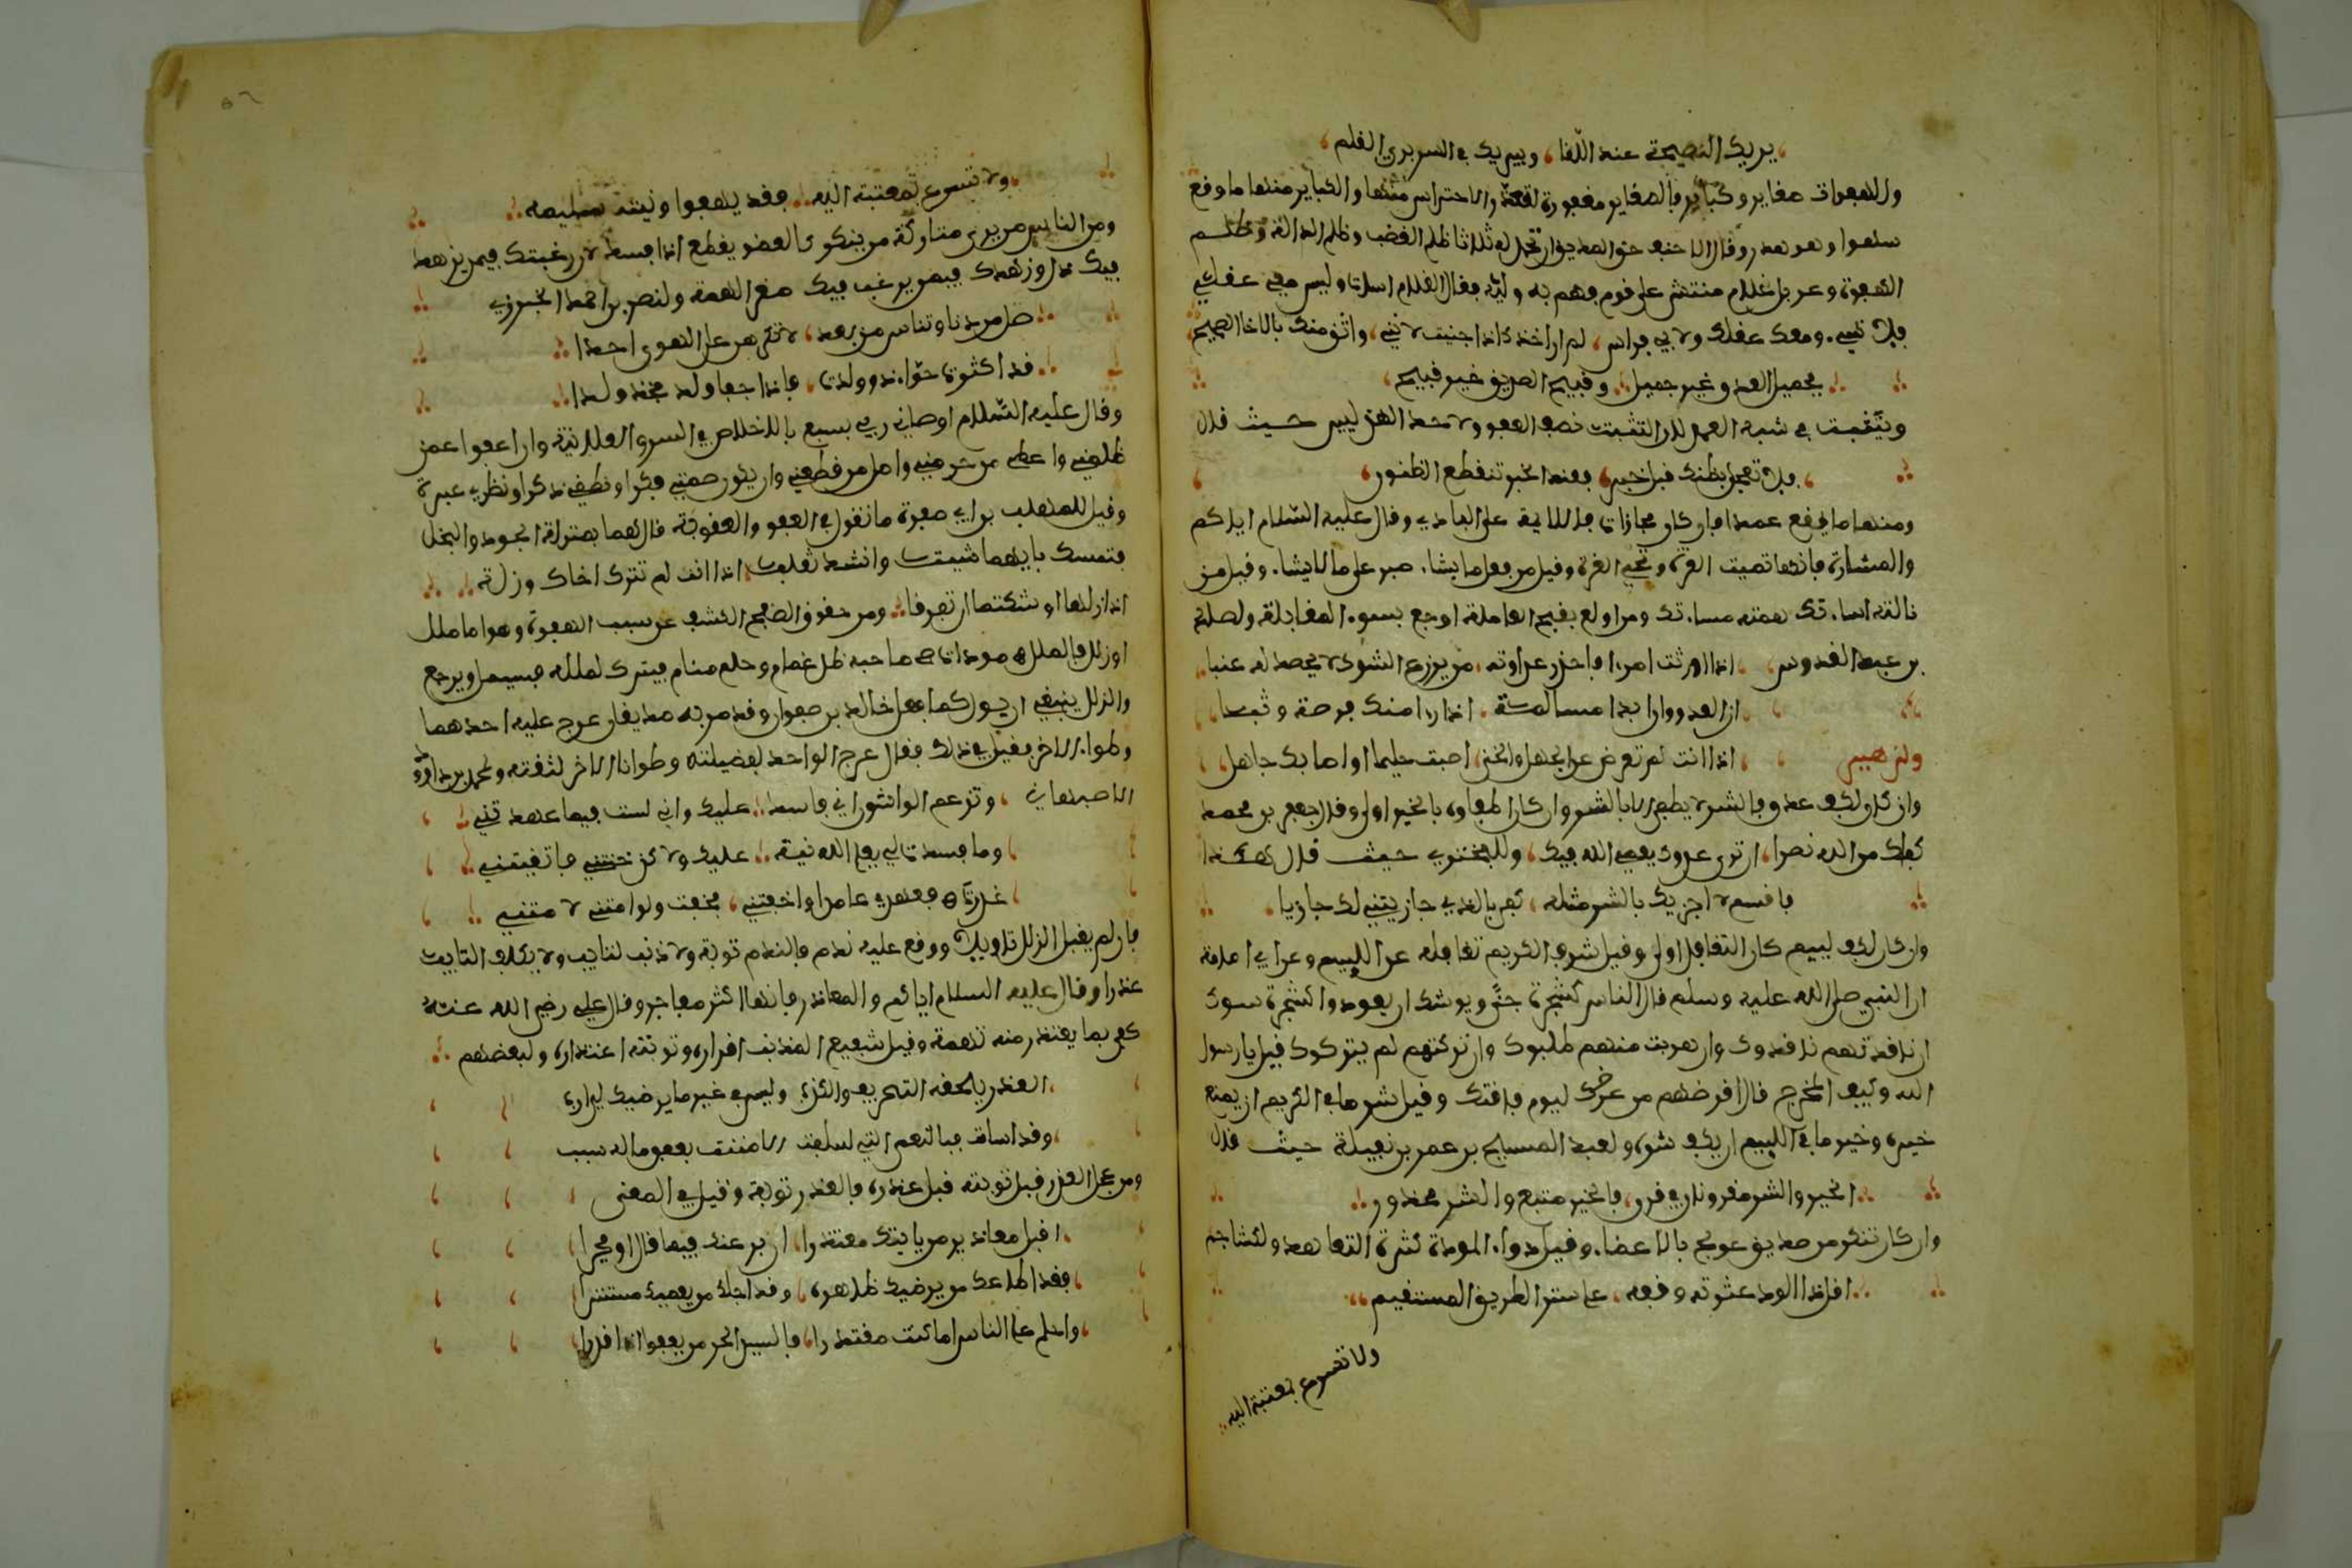 يريك النصيحة عند اللقا، ويبريك في السر بري القلم،
وللهفوات صغاير وكباير فالصغاير مغفورة لقلة الاحتراس منها والكباير منها ما وقع
سهوا وهو هدر وقال الاحنف حق الصديق ان تحمل له ثلاثا ظلم الغضب وظلم الدالة وظلم
الهفوة وعربد غلام منتش على قوم فهم به وليه فقال الغلام اسات وليس معي عقلي
فلا تسي. ومعك عقلك ولابي فراس، لم اواخذك اذا جنيت لاني، واثق منك بالاخا الصحيح
فجميل العدو غير جميل، وقبيح الصديق غير قبيح،
ويتعقب في شبه العمد لان التثبت نصف العفو ولاحمد الهزليين حيث قال
، فلا تعجل بظنك قبل خبر، فعند الخبر تنقطع الظنون،
ومنها ما يقع عمدا فان كان مجازات فلالايمة على البادي وقال عليه السلام اياكم
والمشارة فانها تميت الغرة وتحيي العرة وقيل من فعل ما يشا. صبر على ما لا يشا. وقيل من
نالته اسا.تك همته مسا.تك ومن اولع بقبح المعاملة اوجع بسو. المقابلة ولصالح
بن عبد القدوس، اذا اوترت امرا فاحذر عداوته، من يزرع الشوك لا يحصد له عنبا،
ان العدو وان ابدا مسالمة. اذا را منك فرصة وثبا،
ولزهير، اذا انت لم تعرض عن الجهل والخنى، اصبت حليما او اصابك جاهل،
وان كان لكف عدو فالشر لا يطفى الا بالشر وان كان الطفاو، بالخير اولى وقال جعفر بن محمد
كفاك من الله نصرا، ان ترى عدوك يعصي الله فيك، وللبحتري حيث قال هكذا
فاقسم لا اجزيك بالشر مثله، كفى بالذي جازيتني لك جازيا.
وان كان لكف لييم كان التغافل اولى وقيل شرف الكريم تغافله عن اللييم وعن ابي امامة
ان النبي صلى الله عليه وسلم قال الناس كشجرة جنى ويوشك ان يعودوا كشجرة شوك
ان ناقدتهم ناقدوك وان هربت منهم طلبوك وان تركتهم لم يتركوك قيل يا رسول
الله وكيف المخرج قال اقرضهم من عرضك ليوم فاقتك وقيل شر ما في الكريم ان يمنع
خيره وخير ما في اللييم ان يكف شره ولعبد المسيح بن عمر بن نفيلة حيث قال
الخير والشر مقرونان في قرن، فالخير متبع والشر محذور
وان كان تنكر من صديق عولج بالاغضا. وقيل دوا. المودة كثرة التعاهد ولكشاجم
اقل ذا الود عثرته وقفه، على سنن الطريق المستقيم
ولا تسرع بمعتبة اليه
ولا تسرع بمعتبة اليه فقد يهفوا ونيته سليمه
ومن الناس من يرى متاركة من ينكر كالعضو يقطع اذا فسد لان رغبتك فيمن يزهد
فيك ذل وزهدك فيمن يرغب فيك صغر الهمة ولنصر بن احمد الخبزرزي
صل من دنا وتناس من بعد، لا تكرهن على الهوى احدا
قد اكثرت حوا. اذ ولدت، فاذا جفا ولد فخذ ولدا
وقال عليه السلام اوصاني ربي بسبع بالاخلاص في السر والعلانية وان اعفوا عمن
ظلمني واعطي من حرمني واصل من قطعني وان يكون صمتي فكرا ونطقي ذكرا ونظري عبرة
وقيل للمهلب بن ابي صفرة ما تقول في العفو والعقوبة قال هما بمنزلة الجود والبخل
فتمسك بايهما شيت وانشد ثعلب، اذا انت لم تترك اخاك وزلة
اذا زلها اوشكتما ان تفرقا ومن حقوق الصفح الكشف عن سبب الهفوة وهو اما ملل
او زلل فالملل مودات صاحبه ظل غمام وحلم منام فيترك لملله فسيمل ويرجع
والزلل ينبغي ان يول كما فعل خالد بن صفوان وقد مر به صديقان عرج عليه احدهما
وطوا. الاخر فقيل في ذلك فقال عرج الواحد لفضيلته وطوانا الاخر لثقته ولمحمد بن داود
الاصبهاني، وتزعم الواشون اني فاسد عليك واني لست فيما عهدتني
وما فسدت لي يعلم الله نية عليك ولاكن خنتني فاتهمتني
غدرت بعهدي عامدا واخفتني، فخفت ولو امنتني لامنتني
فان لم يقبل الزلل تاويلا ووقع عليه ندم فالندم توبة ولا ذنب لتايب ولا يكلف التايب
عذرا وقال عليه السلام اياكم والمعاذر فانها اكثر مفاجر وقال علي رضي الله عنه
كفى بما يعتذر منه تهمة وقيل شفيع المذنب اقراره وتوبته اعتذاره ولبعضهم
العذر يلحقه التحريف والكذب وليس في غير ما يرضيك لي ارب
، وقد اسات فبالنعم التي سلفت الا مننت بعفو ما له سبب
ومن عجل العذر قبل توبته قبل عذره فالعذر توبة وقيل في المعنى
، اقبل معاذير من ياتيك معتذرا، ان بر عندك فيما قال او فجرا
، فقد اطاعك من يرضيك ظاهره، وقد اجلك من يعصيك مستترا
، واحلم على الناس اما كنت مقتدرا، فالسيد الحر من يعفوا اذا قدرا